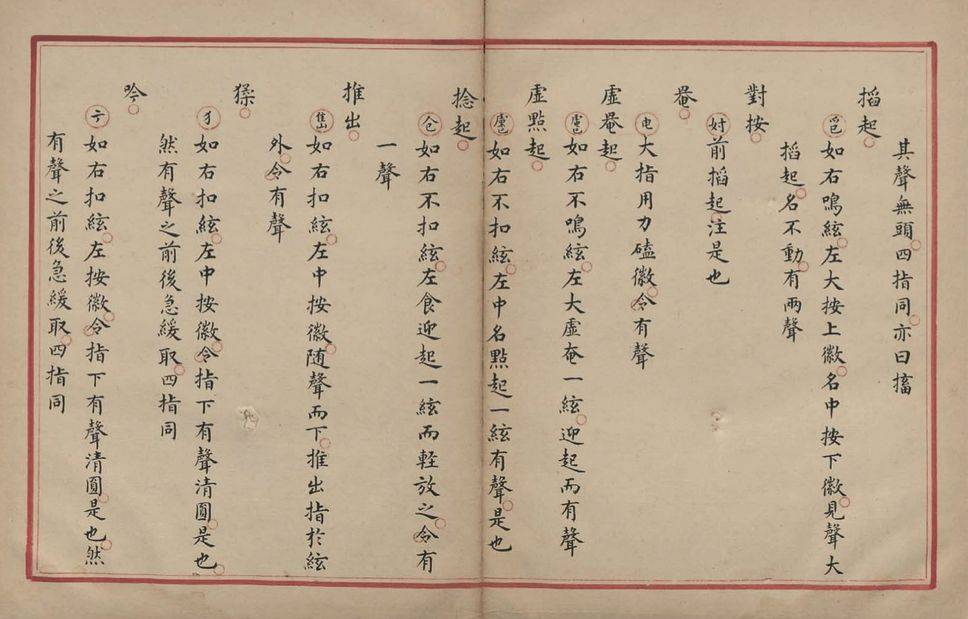 其聲無頭四指同亦曰搐
搯起
如右鳴絃左大按上徽名中按下徽見聲大
搯起名不動有兩聲
對按
前搯起注是也
罨
大指用力磕徽令有聲
虛罨起
如右不鳴絃左大虛奄一絃迎起而有聲
虛點起
如右不扣絃左中名點起一絃有聲是也
捻起
如右不扣絃左食迎起一絃而輕放之令有
一聲
推出
如右扣絃左中按徽随聲而下推出指於絃
外令有聲
猱
犭如右扣絃左中按徽令指下有聲清圓是也
然有聲之前後急緩取四指同
吟
如右扣絃左按徽令指下有聲清圓是也然
有聲之前後急緩取四指同